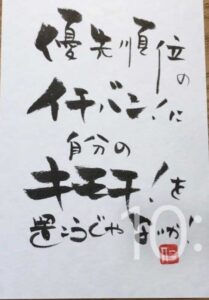 優先順位の
イチバン!に
自分の
キモチ!を
置こうじゃないか!
10: